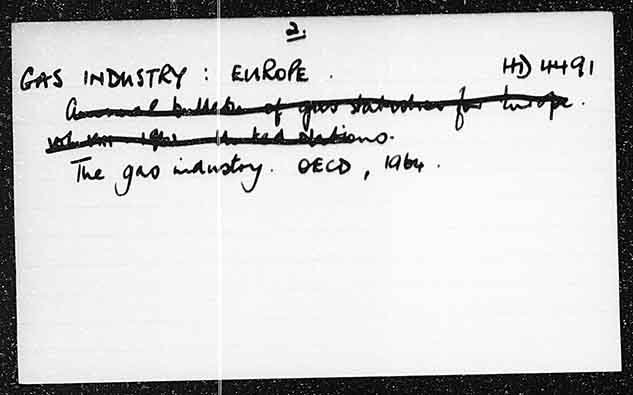 2.
GAS INDUSTRY : EUROPE . HD 4491
Annual bulletin of gas statistics for Europe.
United Nations.
The gas industry. OECD, 1964.